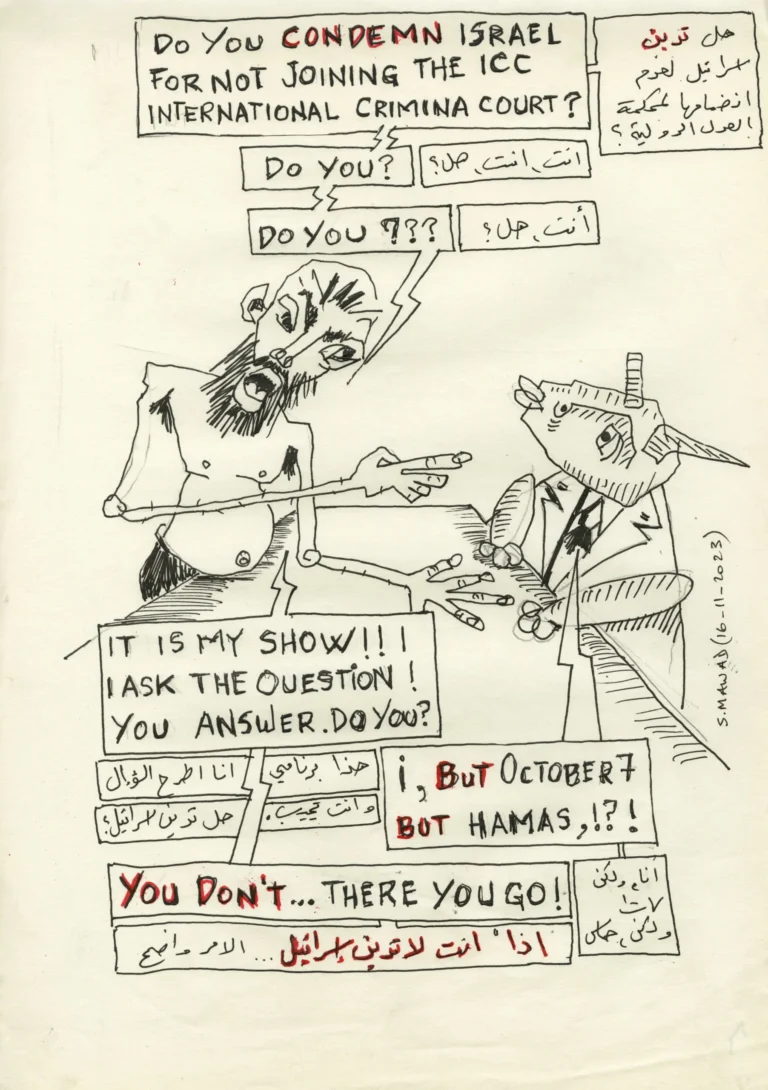 DO YOU CONDEMN ISRAEL
FOR NOT JOINING THE ICC
INTERNATIONAL CRIMINA COURT?
هل تدين
اسرائيل لعدم
انضمامها لمحكمة
العدل الدولية؟
DO YOU?
انت، انت، هل؟
DO YOU ???
أنت، هل؟
IT IS MY SHOW!! I
I ASK THE QUESTION!
YOU ANSWER. DO YOU?
هذا برنامجي
انا اطرح السؤال
وانت تجيب.
هل تدين اسرائيل؟
i, BUT OCTOBER 7
BUT HAMAS,!?!
أنا، ولكن
ولكن، حماس
YOU DON'T... THERE YOU GO!
اذا" انت لا تدين إسرائيل... الامر واضح
S. MAWAD (16-11-2023)